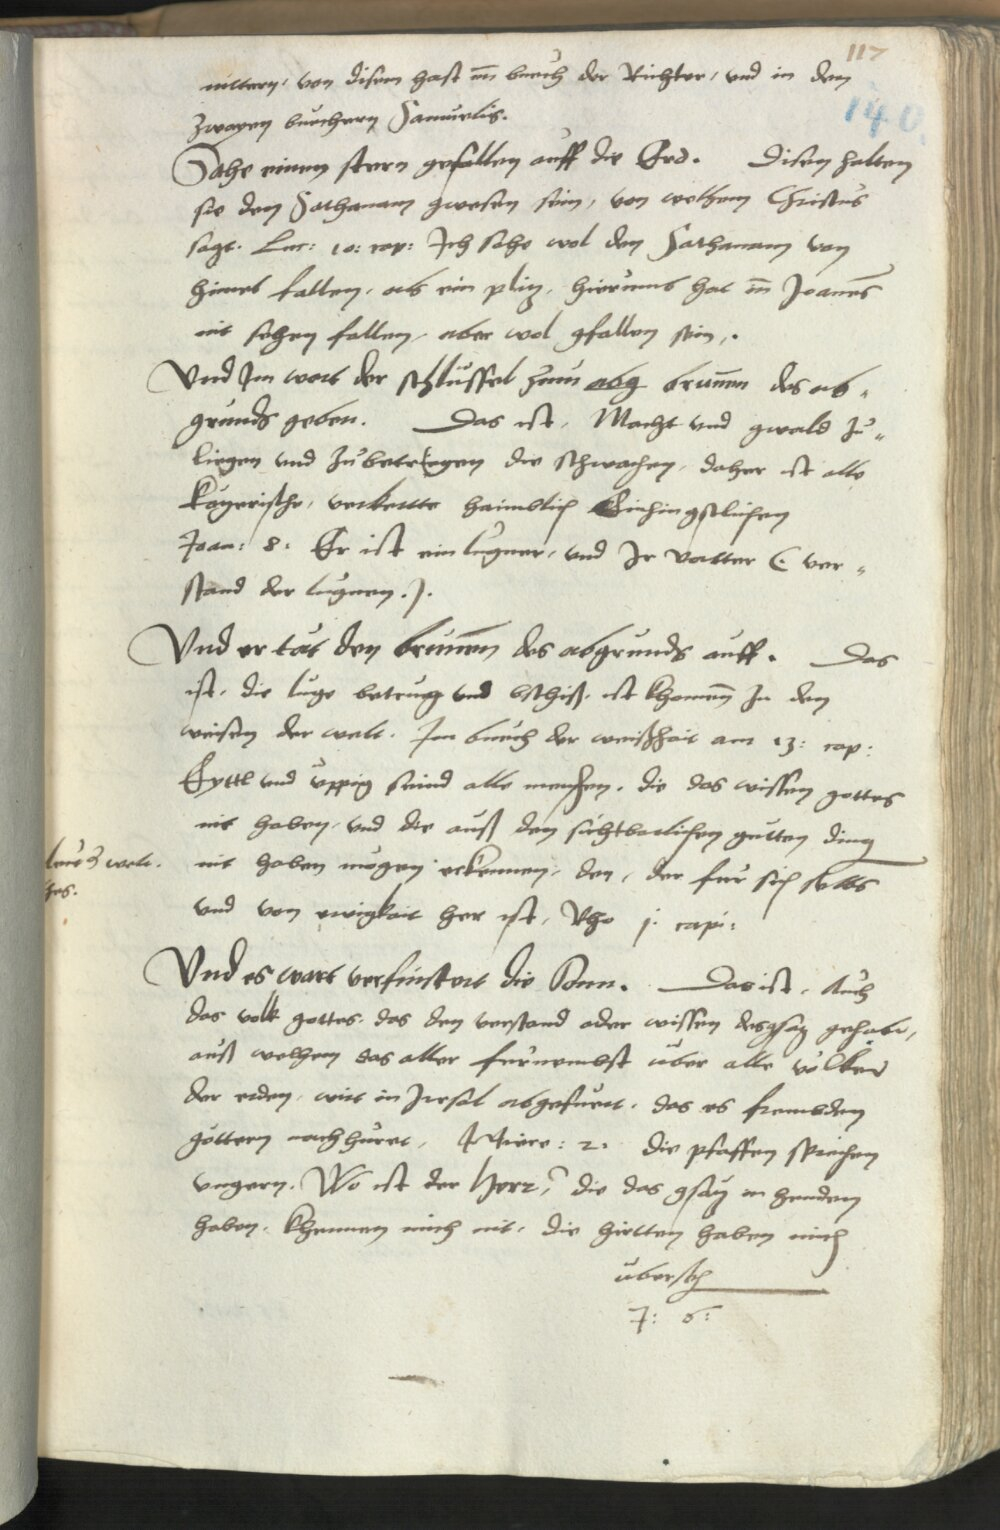 117
140.
nittern, von disem hast im buech der Richter, und in den
zwayen buechern Samuelis.
Sahe einen stern gefallen auff die Erd. Disen halten
sie den Sathanam gwesen sein, von welhem Christus
sagt. Luc: 10: cap: Ich sahe wol den Sathanam von
himel fallen, als ein plitz, hierumb hat in Joannes
nit sehen fallen, aber wol gfallen sein,.
Und Im wart der schlüssel zum abg brunnen des ab-
grunds geben. Das ist, Macht und gwald zu-
liegen und zubetriegen die schwachen, daher ist alle
verkertte haimblich
Joan: 8: Er ist ein lugner, und Ir vatter (: ver-
stand der lugnen.).
Und er tät den brunnen des abgrunds auff. Das
ist, die luge betrug und bschiß, ist khomen In den
weisen der welt. Im buech der weißhait am 13: cap:
Eyttl und üppig seind alle menschen, die das wissen gottes
nit haben, und die auß den sichtbarlichen gutten ding
nit haben mugen erkennen, den, der fur sich selbs
und von ewigkait her ist, Rho j. capi:
Und es wart verfinstert die Sonn. Das ist, Auch
das volk gottes, das den verstand oder wissen des gsatz gehabt,
auß welhem das aller furnembst uber alle völker
der erden, wirt in Irsal abgefuert, das es frembden
göttern nachhuret, Hiere: 2. die pfaffen sprachen
ungern. Wo ist der Herr,? die das gsatz in henden
haben, khennen mich nit, die hirtten haben mich
ubersch
7: 6: